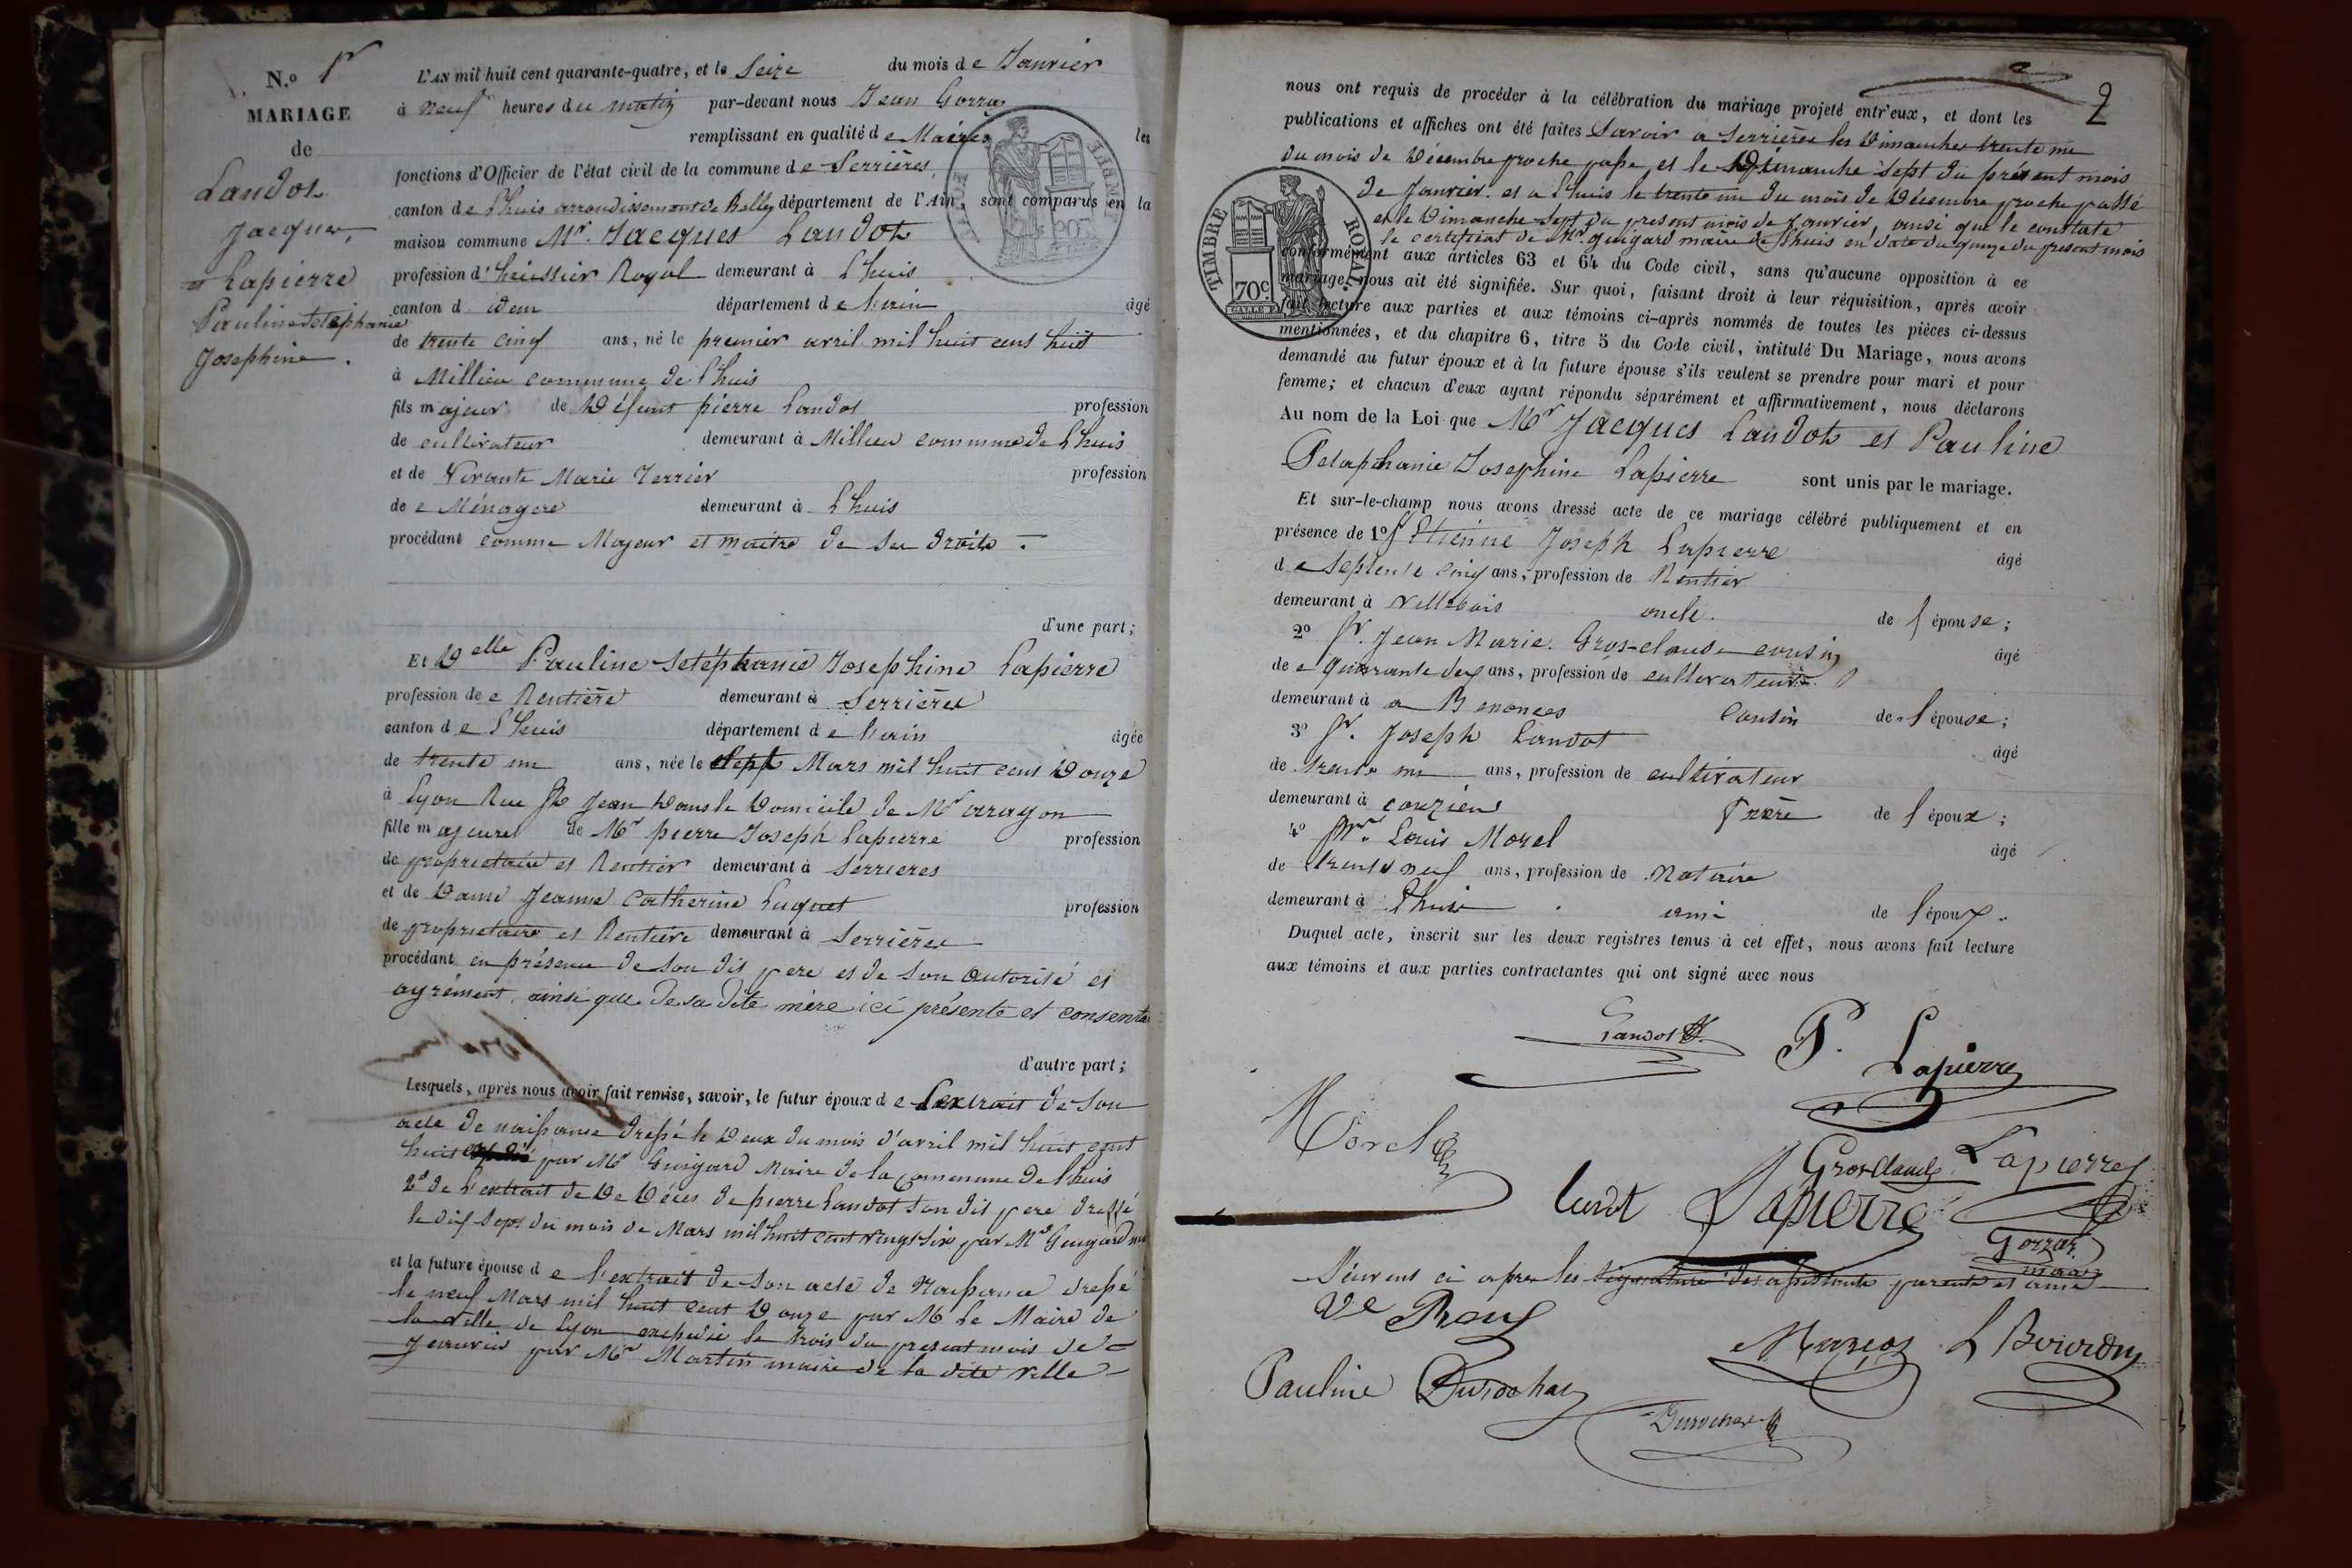 N.o 1er
MARIAGE
de
Landot
Jacques,
et Lapierre
Pauline Setéphanie
Josephine.
L'AN mil huit cent quarante-quatre, et le Seize du mois de Janvier
à neuf heures du matin par-devant nous Jean Gorraz
remplissant en qualité de Maire les
fonctions d'Officier de l'état civil de la commune de Serrières,
canton de Lhuis arrondissement de Belley département de l'Ain, sont comparus en la
maison commune Mr. Jacques Landot
profession d'huissier Royal demeurant à Lhuis
canton d idem département de Lain âgé
de trente cinq ans, né le premier avril mil huit cent huit
à Millieu commune de Lhuis
fils majeur de Défunt pierre Landot profession
de cultivateur demeurant à Millieu commune de Lhuis
et de Vivante Marie Terrier profession
de e Ménagere demeurant à Lhuis
procédant comme Majeur et maitre de ses droits.
d'une part;
Et Delle Pauline Setéphanie Josephine Lapierre
profession de e Rentière demeurant à Serrières
canton de Lhuis département de Lain âgée
de trente un ans, née le sept Mars mil huit cent Douze
à Lyon Rue St Jean Dans le Domicile de Mr arragon
fille majeure de Mr pierre Joseph Lapierre profession
de proprietaire et Rentier demeurant à Serrieres
et de Dame Jeanne Catherine Luquet profession
de proprietaire et Rentière demeurant à Serrières
procédant en présence de son dit pere et de son autorité et
agrément. ainsi que de sa dite mère ici présente et consenta
d'autre part;
Lesquels, après nous avoir fait remise, savoir, le futur époux de Lextrait de son
acte de naissance dressé le Deux du mois d'avril mil huit cent
huit par Mr Guigard Maire de la Commune de Lhuis
2° de l'extrait de De Décès de pierre Landot son dit pere dressé
le dix sept du mois de Mars mil huit cent vingt six par Mr Guigard
et la future épouse de l'extrait de son acte de Naissance dressé
le neuf Mars mil huit cent Douze par M le Maire de
la ville de Lyon expedié le trois du present mois de
Janvier par Mr Martin maire de la dite ville
2
nous ont requis de procéder à la célébration du mariage projeté entr'eux, et dont les
publications et affiches ont été faites Savoir a Serrières les Dimanches trente un
du mois de Décembre proche passé, et le Dimanche sept du présent mois
de Janvier. et a Lhuis le trente un du mois de Décembre proche passé
et le Dimanche sept du present mois de Janvier, ainsi que le constate
le certificat de Mr. Guigard maire de Lhuis en date du quinze du present mois
conformément aux articles 63 et 64 du Code civil, sans qu'aucune opposition à ce
mariage nous ait été signifiée. Sur quoi, faisant droit à leur réquisition, après avoir
fait lecture aux parties et aux témoins ci-après nommés de toutes les pièces ci-dessus
mentionnées, et du chapitre 6, titre 5 du Code civil, intitulé Du Mariage, nous avons
demandé au futur époux et à la future épouse s'ils veulent se prendre pour mari et pour
femme; et chacun d'eux ayant répondu séparément et affirmativement, nous déclarons
Au nom de la Loi que Mr Jacques Landot et Pauline
Setaphanie Josephine Lapierre sont unis par le mariage.
Et sur-le-champ nous avons dressé acte de ce mariage célébré publiquement et en
présence de 1° Sr Etienne Joseph Lapierre âgé
de septente cinq ans, profession de Rentier
demeurant à Villebois oncle. de l'épouse;
2° Sr. Jean Marie. Gros-claude cousin âgé
de e quarante deux ans, profession de cultivateur
demeurant à a Benonces Cousin de l'épouse;
3° Sr. Joseph Landot âgé
de trente un ans, profession de cultivateur
demeurant à couzieu frère de l'époux;
4° Louis Morel âgé
de trente neuf ans, profession de Notaire
demeurant à Lhuis ami de l'époux.
Duquel acte, inscrit sur les deux registres tenus à cet effet, nous avons fait lecture
aux témoins et aux parties contractantes qui ont signé avec nous
Landot P. Lapierre
Morel
Grosclaude Lapierre
Landot Lapierre
Gorraz
maire
Suivent ci apres les signature des assistants parents et amis
Ve
Pauline Durochat
L Bourdin
Durochat
TIMBRE ROYAL.
70c